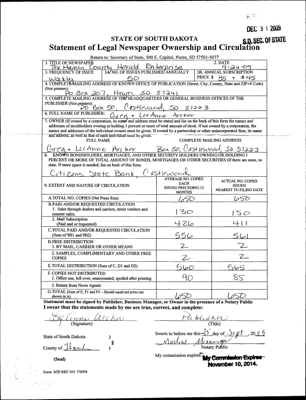 DEC 31 2009
S.D. SEC. OF STATE
STATE OF SOUTH DAKOTA
Statement of Legal Newspaper Ownership and Circulation
Return to: Secretary of State, 500 E. Capitol, Pierre, SD 57501-5077
1. TITLE OF NEWSPAPER
2. DATE
The Hamlin County Herald Enterprise
9-24-09
3. FREQUENCY OF ISSUE
3A. NO. OF ISSUES PUBLISHED ANNUALLY
3B. ANNUAL SUBSCRIPTION
Weekly
50
PRICE $ 35 + $45
4. COMPLETE MAILING ADDRESS OF KNOWN OFFICE OF PUBLICATION (Street, City, County, State and ZIP+4 Code)
(Not printers)
PO Box 207, Hayti, SD 57241
5. COMPLETE MAILING ADDRESS OF THE HEADQUARTERS OR GENERAL BUSINESS OFFICES OF THE
PUBLISHER (Not printers)
PO Box 50, Castlewood, SD 57223
6. FULL NAME OF PUBLISHER:
Greg & LeAnne Archer
7. OWNER (If owned by a corporation, its name and address must be stated
FULL NAME
COMPLETE MAILING ADDRESS
Greg & LeAnne Archer
Box 50, Castlewood, SD 57223
8. KNOWN BONDHOLDERS, MORTGAGES, AND OTHER SECURITY HOLDERS OWNING OR HOLDING 1
PERCENT OR MORE OF TOTAL AMOUNT OF BONDS, MORTGAGES OR OTHER SECURITIES (If there are none, so
state. If more space is needed, list on back of this form.
Citizens State Bank, Castlewood
9. EXTENT AND NATURE OF CIRCULATION
AVERAGE NO. COPIES
EACH
ISSUES PRECEDING 12
MONTHS
ACTUAL NO. COPIES
ISSUED
NEAREST TO FILING DATE
A. TOTAL NO. COPIES (Net Press Run)
650
650
B. PAID AND/OR REQUESTED CIRCULATION
1. Sales through dealers and carriers, street vendors and
counter sales.
130
150
2. Mail Subscription
(Paid and or requested)
426
411
C. TOTAL PAID AND/OR REQUESTED CIRCULATION
(Sum of 9B1 and 9B2)
556
561
D. FREE DISTRIBUTION
1. BY MAIL, CARRIER OR OTHER MEANS
2
2
2. SAMPLES, COMPLIMENTARY AND OTHER FREE
COPIES
2
2
E. TOTAL DISTRIBUTION (Sum of C, D1 and D2)
560
565
F. COPIES NOT DISTRIBUTED
1. Office use, left over, unaccounted, spoiled after printing
90
85
2. Return from News Agents
G. TOTAL (Sum of E, F1 and F2 - Should equal net press run
shown in A)
650
650
Statement must be signed by Publisher, Business Manager, or Owner in the presence of a Notary Public
I swear that the statements made by me are true, correct, and complete:
LeAnne Archer
Publisher
(Signature)
(Title)
State of South Dakota )
Sworn to before me this
day of Sept, 2009
County of
)
Notary Public
(Seal)
My commission expires
My Commission Expires
November 10, 2014.
Form: SOS REC 051 7/2004